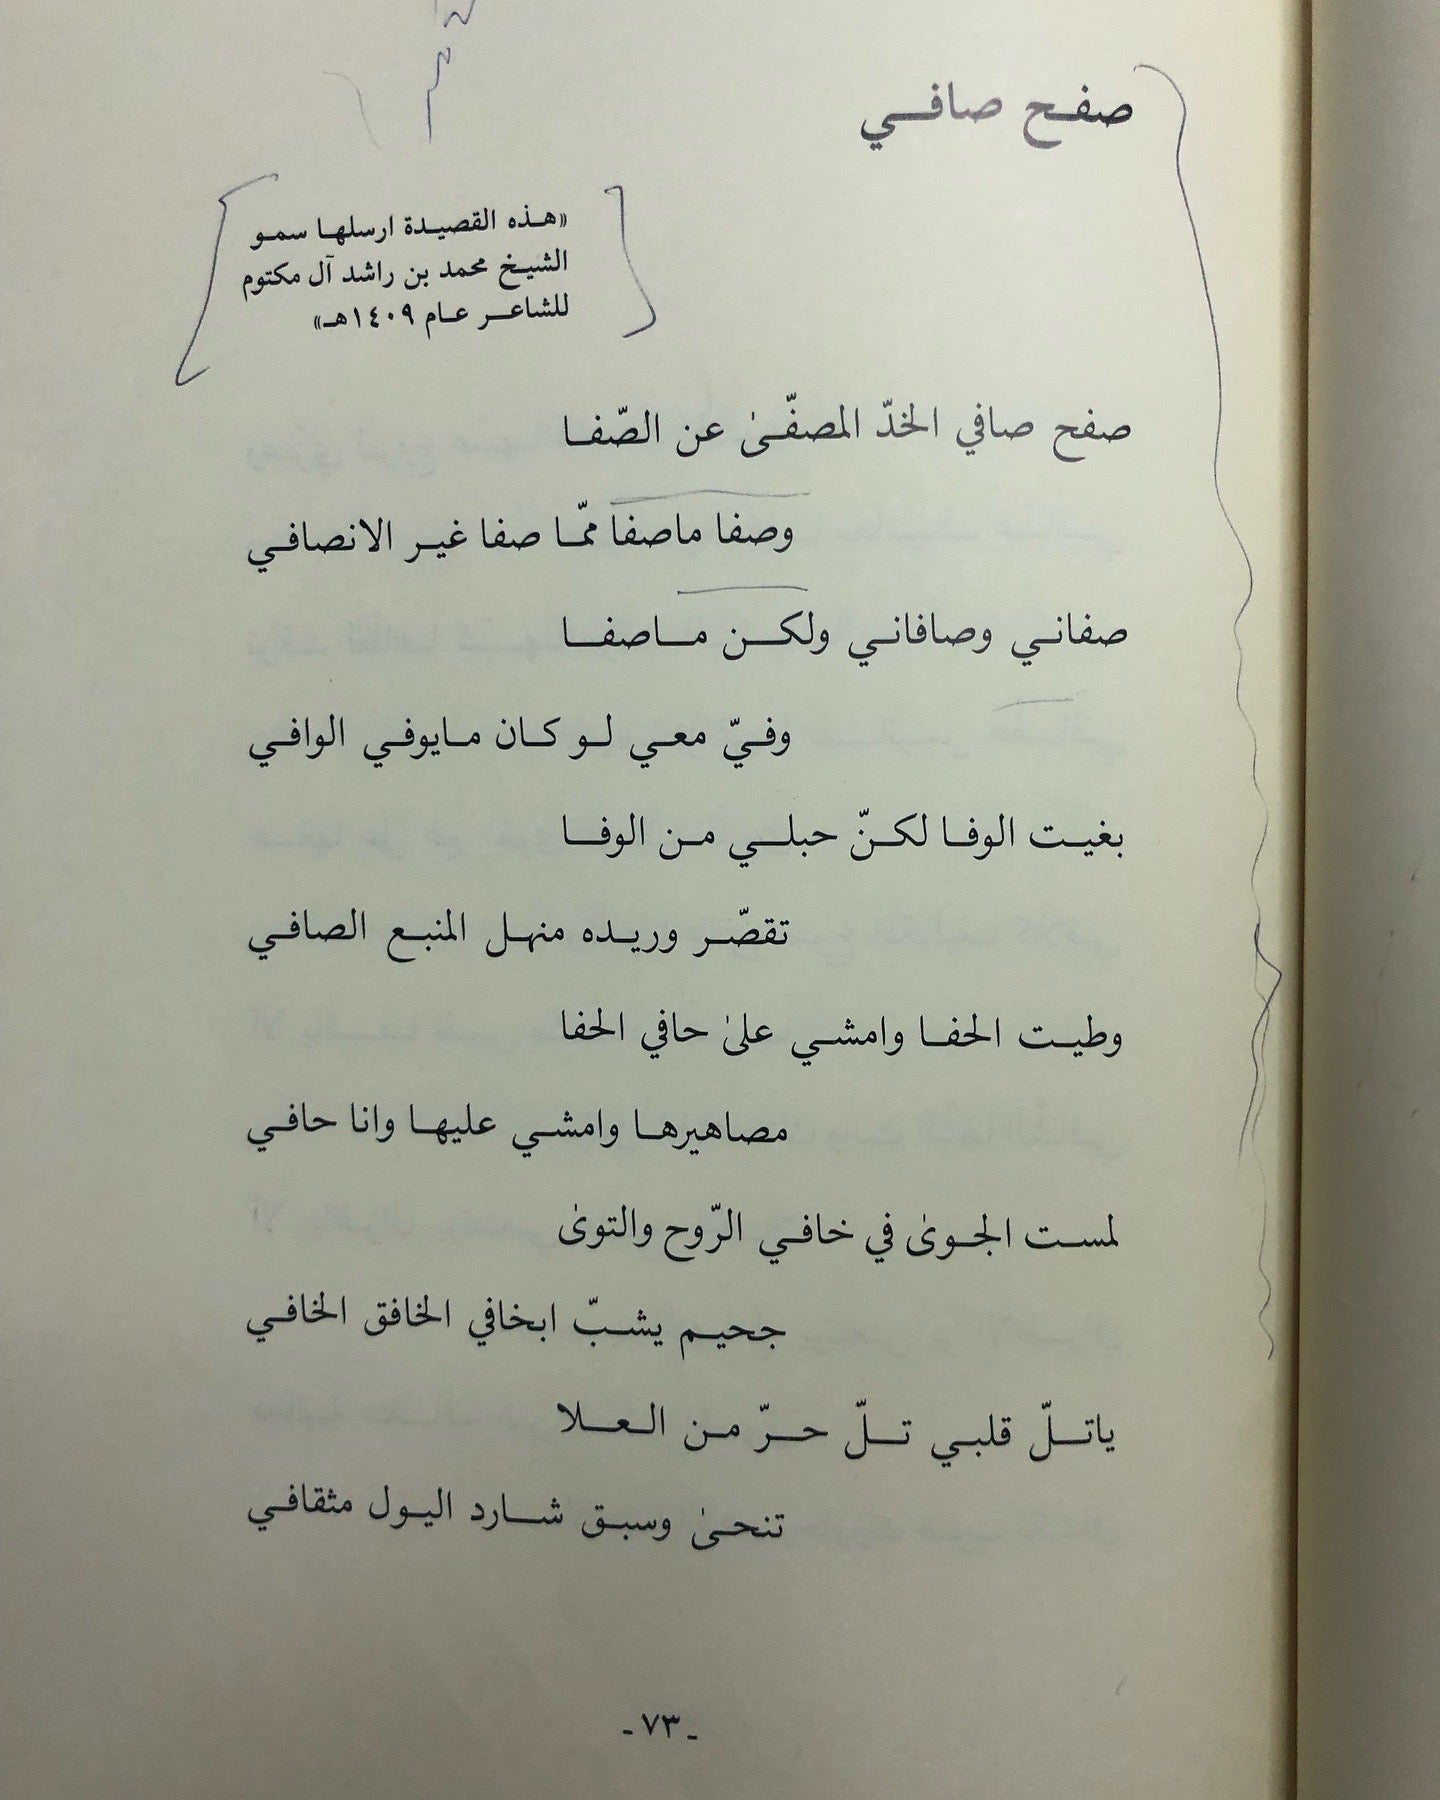 صفح صافي
«هذه القصيدة ارسلها سمو
الشيخ محمد بن راشد آل مكتوم
للشاعر عام ١٤٠٩هـ»
صفح صافي الخدّ المصفّىٰ عن الصّفا
وصفا ماصفا ممّا صفا غير الانصافي
صفاني وصافاني ولكن ماصفا
وفيّ معي لو كان مايوفي الوافي
بغيت الوفا لكنّ حبلي من الوفا
تقصّر وريده منهل المنبع الصافي
وطيت الحفا وامشي علىٰ حافي الحفا
مصاهيرها وامشي عليها وانا حافي
لمست الجوىٰ في خافي الرّوح والتوىٰ
جحيم يشبّ ابخافي الخافق الخافي
ياتلّ قلبي تلّ حرّ من العلا
تنحىٰ وسبق شارد اليول مثقافي
ـ ٧٣ ـ